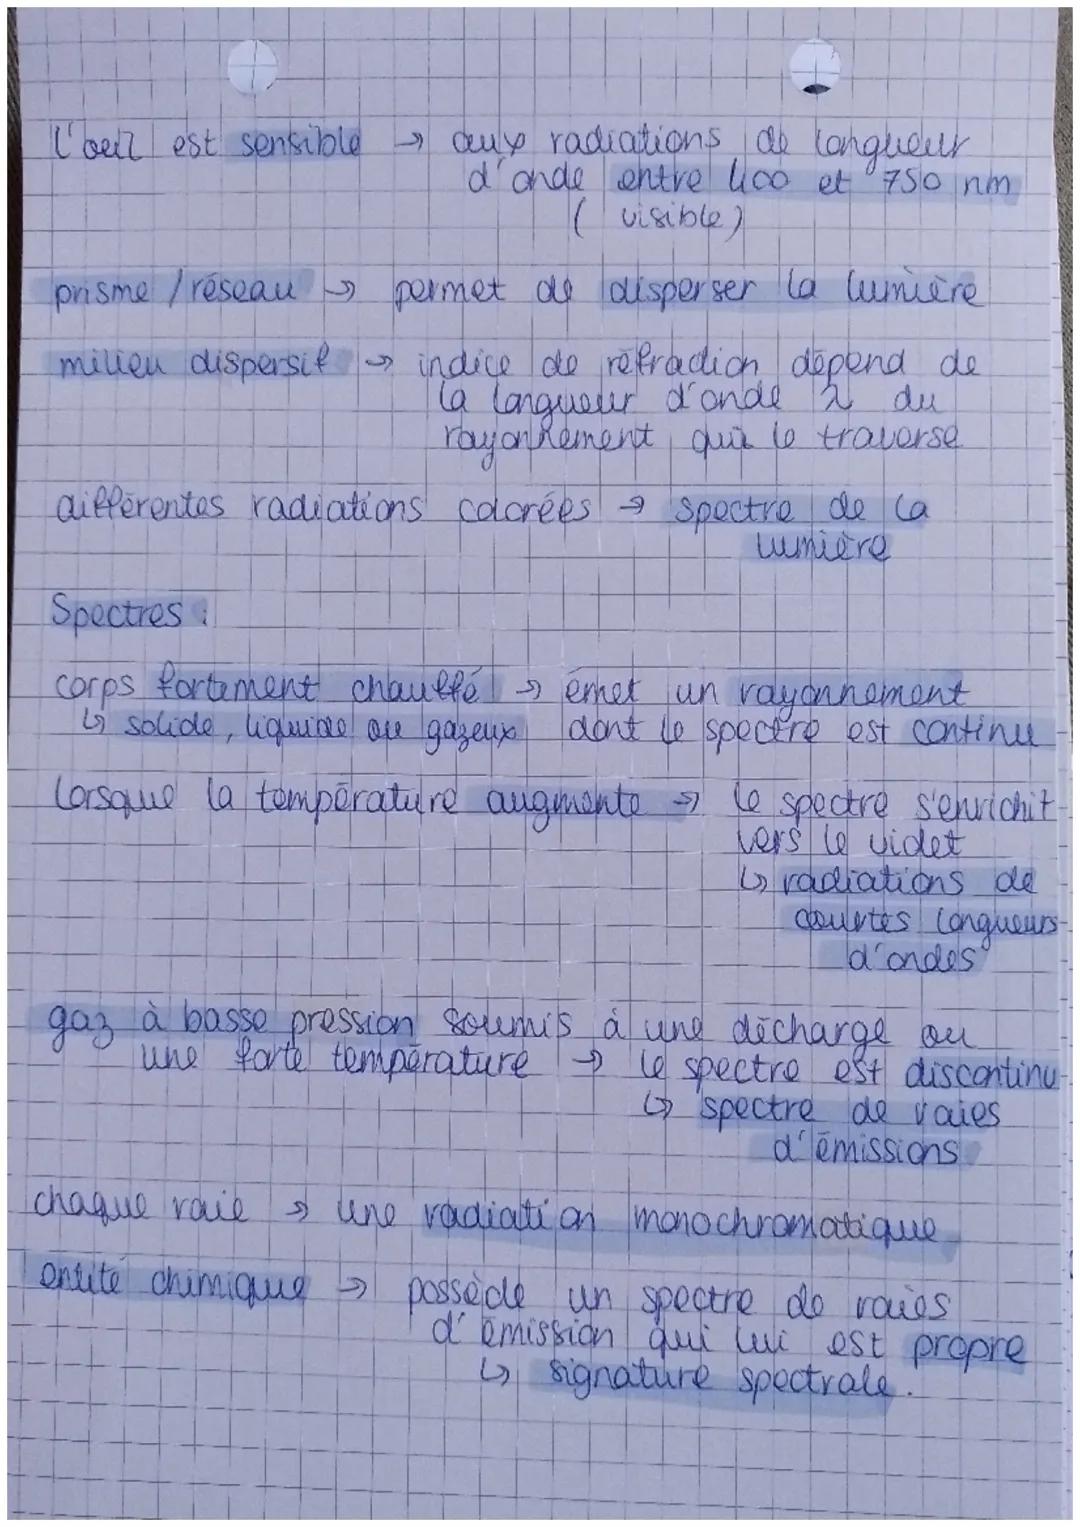 L'oeil est sensible → aux radiations de longueur
d'onde entre 400 et 750 nm
( visible )
prisme / réseau → permet de disperser la lumière
milieu dispersif → indice de réfraction dépend de
la longueur d'onde λ du
rayonnement qui le traverse
différentes radiations colorées → spectre de la
lumière
Spectres :
corps fortement chauffé → émet un rayonnement
↳ solide, liquide ou gazeux dont le spectre est continu
lorsque la température augmente → le spectre s'enrichit
vers le violet
↳ radiations de
courtes longueurs
d'ondes
gaz à basse pression soumis à une décharge ou
une forte température → le spectre est discontinu
↳ spectre de raies
d'émissions
chaque raie → une radiation monochromatique
entité chimique → possède un spectre de raies
d'émission qui lui est propre
↳ signature spectrale.